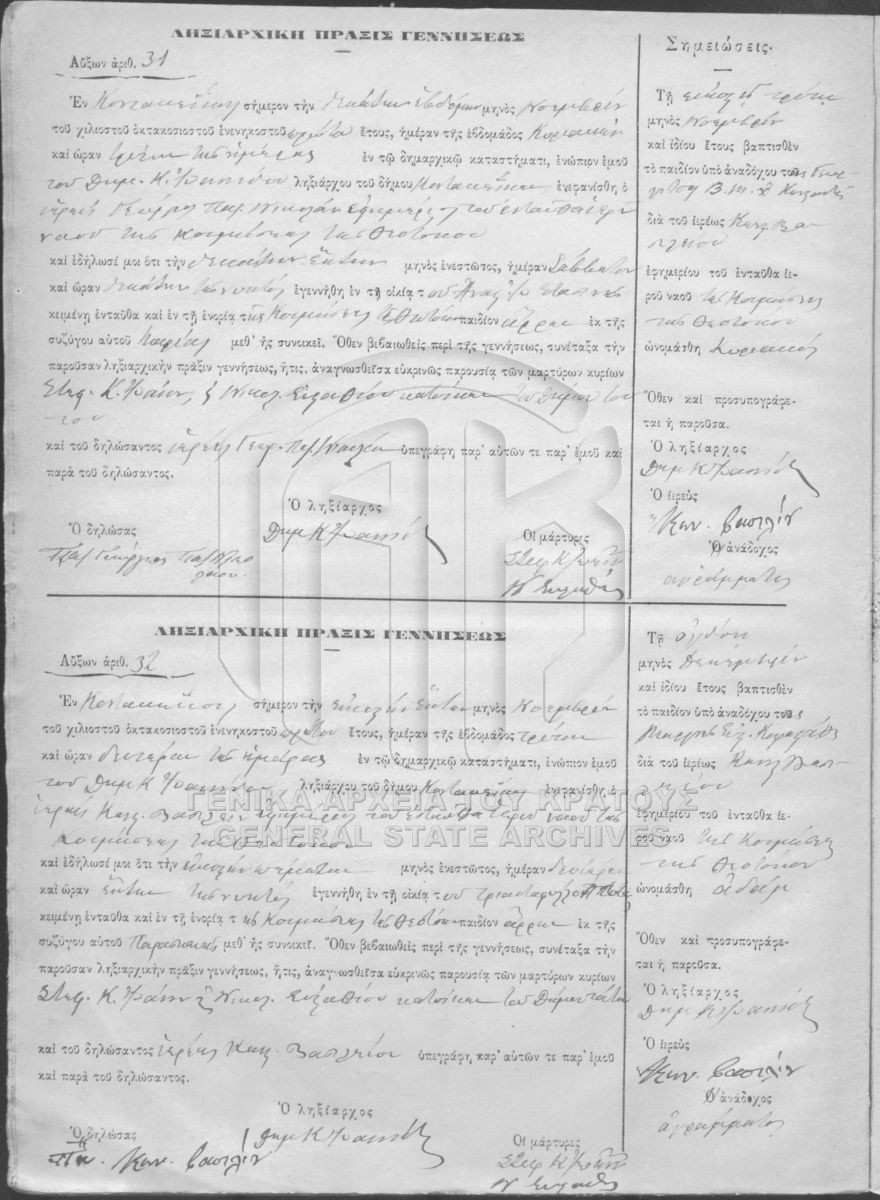 ΛΗΞΙΑΡΧΙΚΗ ΠΡΑΞΙΣ ΓΕΝΝΗΣΕΩΣ
Αὔξων ἀριθ. 31
Ἐν σήμερον τὴν δεκάτην ἑβδόμην μηνὸς Νοεμβρίου
τοῦ χιλιοστοῦ ὀκτακοσιοστοῦ ἐνενηκοστοῦ πρώτου ἔτους, ἡμέραν τῆς ἑβδομάδος Κυριακὴν
καὶ ὥραν τρίτην τῆς ἡμέρας ἐν τῷ δημαρχικῷ καταστήματι, ἐνώπιον ἐμοῦ
τοῦ Δημ. Κ. ληξιάρχου τοῦ δήμου ἐνεφανίσθη ὁ
ἱερεὺς Γεώργιος Παπ. Νικολάου ἐφημέριος τοῦ ἐνταῦθα ἱεροῦ
ναοῦ τῆς Κοιμήσεως τῆς Θεοτόκου
καὶ ἐδήλωσέ μοι ὅτι τὴν δεκάτην ἕκτην μηνὸς ἐνεστῶτος, ἡμέραν Σάββατον
καὶ ὥραν δεκάτην τῆς νυκτός ἐγεννήθη ἐν τῇ οἰκίᾳ τοῦ
κειμένῃ ἐνταῦθα καὶ ἐν τῇ ἐνορίᾳ τῆς Κοιμήσεως τῆς Θεοτόκου παιδίον ἄρρεν ἐκ τῆς
συζύγου αὐτοῦ Μαρίας μεθ' ἧς συνοικεῖ. Ὅθεν βεβαιωθεὶς περὶ τῆς γεννήσεως, συνέταξα τὴν
παροῦσαν ληξιαρχικὴν πρᾶξιν γεννήσεως, ἥτις, ἀναγνωσθεῖσα εὐκρινῶς παρουσίᾳ τῶν μαρτύρων κυρίων
Στεφ. Κ. Νικολ. κατοίκων τοῦ Δήμου τού
του
καὶ τοῦ δηλώσαντος ἱερέως Γεωρ. Παπ. Νικολάου ὑπεγράφη παρ' αὐτῶν τε παρ' ἐμοῦ καὶ
παρὰ τοῦ δηλώσαντος.
Ὁ ληξίαρχος
Ὁ δηλώσας Δημ Κ Οἱ μάρτυρες
Παπ Γεώργιος Παπ Νικο
λάου
Σημειώσεις.
Τῇ εἰκοστῇ τρίτῃ
μηνὸς Νοεμβρίου
καὶ ἰδίου ἔτους βαπτισθὲν
τὸ παιδίον ὑπὸ ἀναδόχου τοῦ
διὰ τοῦ ἱερέως Κων. Βα
σιλείου
ἐφημερίου τοῦ ἐνταῦθα ἱε-
ροῦ ναοῦ τῆς Κοιμήσεως
τῆς Θεοτόκου
ὠνομάσθη Κυριακός
Ὅθεν καὶ προσυπογράφε-
ται ἡ παροῦσα.
Ὁ ληξίαρχος
Δημ Κ
Ὁ ἱερεὺς
Κων. Βασιλίου
Ὁ ἀνάδοχος
ἀγράμματος
ΛΗΞΙΑΡΧΙΚΗ ΠΡΑΞΙΣ ΓΕΝΝΗΣΕΩΣ
Αὔξων ἀριθ. 32
Ἐν σήμερον τὴν εἰκοστὴν ἕκτην μηνὸς Νοεμβρίου
τοῦ χιλιοστοῦ ὀκτακοσιοστοῦ ἐνενηκοστοῦ πρώτου ἔτους, ἡμέραν τῆς ἑβδομάδος τρίτην
καὶ ὥραν δευτέραν τῆς ἡμέρας ἐν τῷ δημαρχικῷ καταστήματι, ἐνώπιον ἐμοῦ
τοῦ Δημ Κ ληξιάρχου τοῦ δήμου ἐνεφανίσθη ὁ
ἱερεὺς Κων. Βασιλείου ἐφημέριος τοῦ ἐνταῦθα ἱεροῦ ναοῦ τῆς
Κοιμήσεως τῆς Θεοτόκου
καὶ ἐδήλωσέ μοι ὅτι τὴν εἰκοστὴν πέμπτην μηνὸς ἐνεστῶτος, ἡμέραν Δευτέραν
καὶ ὥραν ἕκτην τῆς νυκτός ἐγεννήθη ἐν τῇ οἰκίᾳ τοῦ
κειμένῃ ἐνταῦθα καὶ ἐν τῇ ἐνορίᾳ τῆς Κοιμήσεως τῆς Θεοτόκου παιδίον ἄρρεν ἐκ τῆς
συζύγου αὐτοῦ μεθ' ἧς συνοικεῖ. Ὅθεν βεβαιωθεὶς περὶ τῆς γεννήσεως, συνέταξα τὴν
παροῦσαν ληξιαρχικὴν πρᾶξιν γεννήσεως, ἥτις, ἀναγνωσθεῖσα εὐκρινῶς παρουσίᾳ τῶν μαρτύρων κυρίων
Στεφ. Κ. Νικολ. κατοίκων τοῦ Δήμου
καὶ τοῦ δηλώσαντος ἱερέως Κων. Βασιλείου ὑπεγράφη παρ' αὐτῶν τε παρ' ἐμοῦ
καὶ παρὰ τοῦ δηλώσαντος.
Ὁ ληξίαρχος
Ὁ δηλώσας Δημ Κ Οἱ μάρτυρες
Κων. Βασιλίου
Τῇ ὀγδόῃ
μηνὸς Δεκεμβρίου
καὶ ἰδίου ἔτους βαπτισθὲν
τὸ παιδίον ὑπὸ ἀναδόχου τοῦ
διὰ τοῦ ἱερέως Κων. Βασι
λείου
ἐφημερίου τοῦ ἐνταῦθα ἱε-
ροῦ ναοῦ τῆς Κοιμήσεως
τῆς Θεοτόκου
ὠνομάσθη Ἀδάμ
Ὅθεν καὶ προσυπογράφε-
ται ἡ παροῦσα.
Ὁ ληξίαρχος
Δημ Κ
Ὁ ἱερεὺς
Κων. Βασιλίου
Ὁ ἀνάδοχος
ἀγράμματος
ΓΕΝΙΚΑ ΑΡΧΕΙΑ ΤΟΥ ΚΡΑΤΟΥΣ
GENERAL STATE ARCHIVES